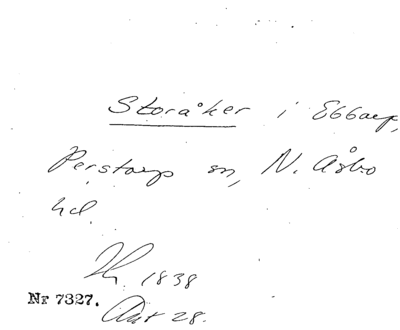 Storåker i Ebbarp,
Perstorp sn, N. Åsbo
hd.
1838
Nr 7327. Akt 28.